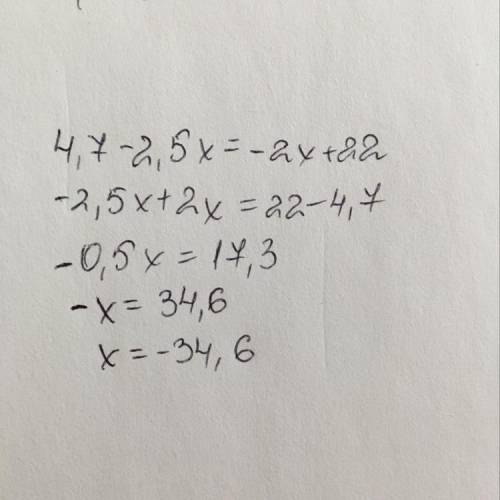 4,7-2,5x=-2x+22
-2,5x+2x=22-4,7
-0,5x=17,3
-x=34,6
x=-34,6